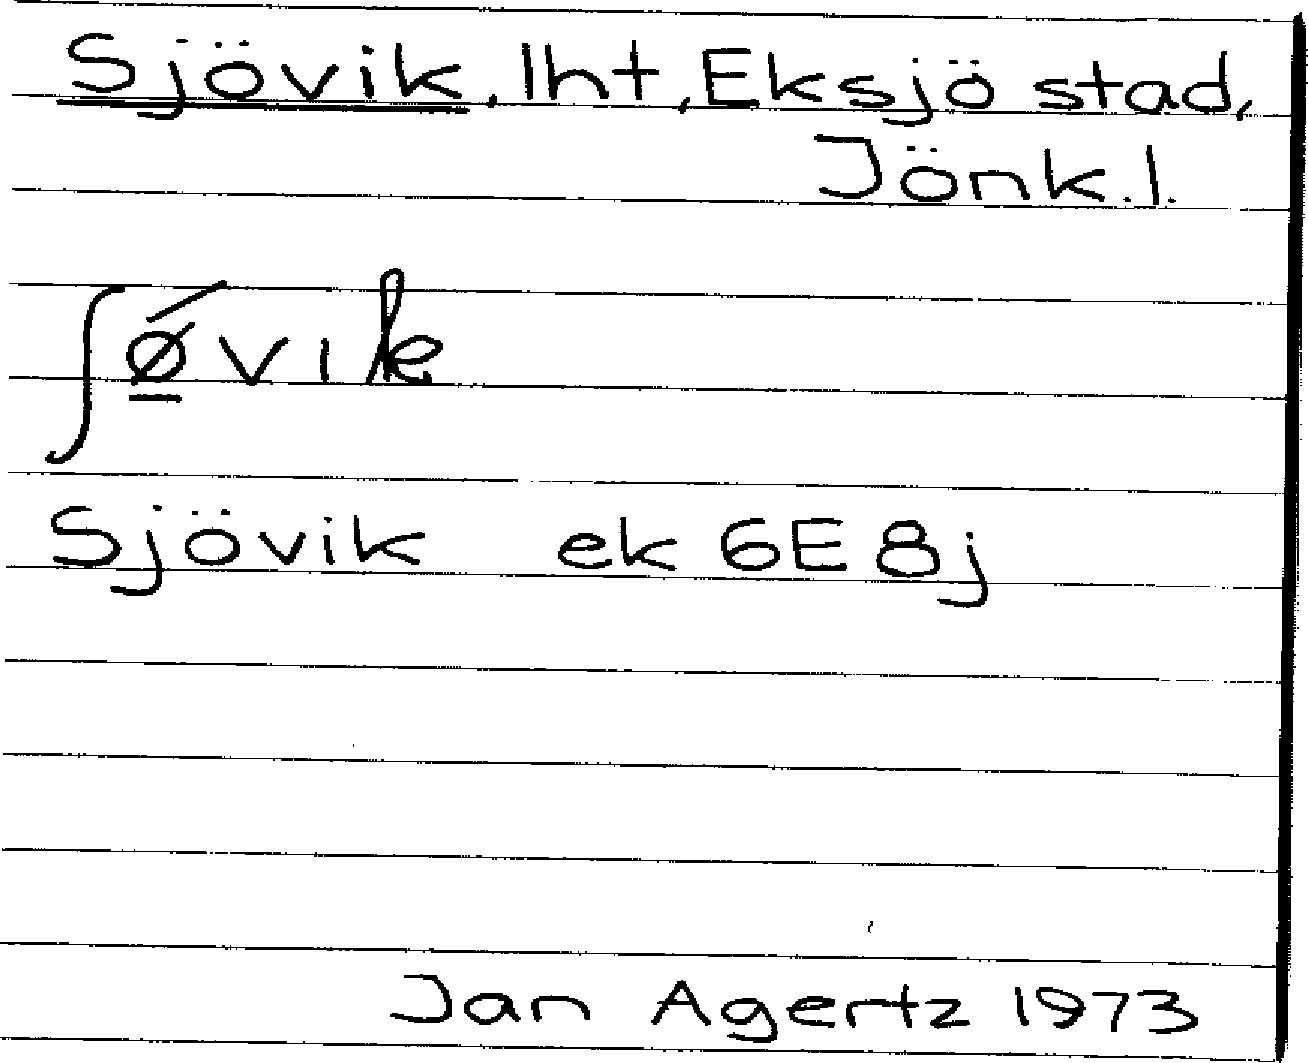 Sjövik, lht, Eksjö stad,
Jönk.l.
ʃǿ̱vik
Sjövik ek 6E8j
Jan Agertz 1973